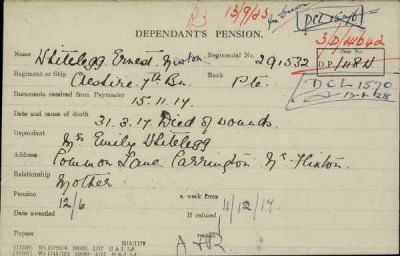 R3 13/9/23
DCL 1570
DEPENDANT'S PENSION.
3D/4642
Name Whitelegg Ernest Newton Regimental No. 291532 Case No.
D.P./ 118 H
Regiment or Ship Cheshire 7th Bn. Rank Pte.
DCL 1570
Documents received from Paymaster 15.11.17.
Date and cause of death 31.3.17. Died of wounds.
Dependant Mrs Emily Whitelegg
Address Common Lane Carrington Nr. Flixton.
Relationship Mother
Pension 12/6 a week from 11/12/17.
Date awarded If refused
reason
Papers